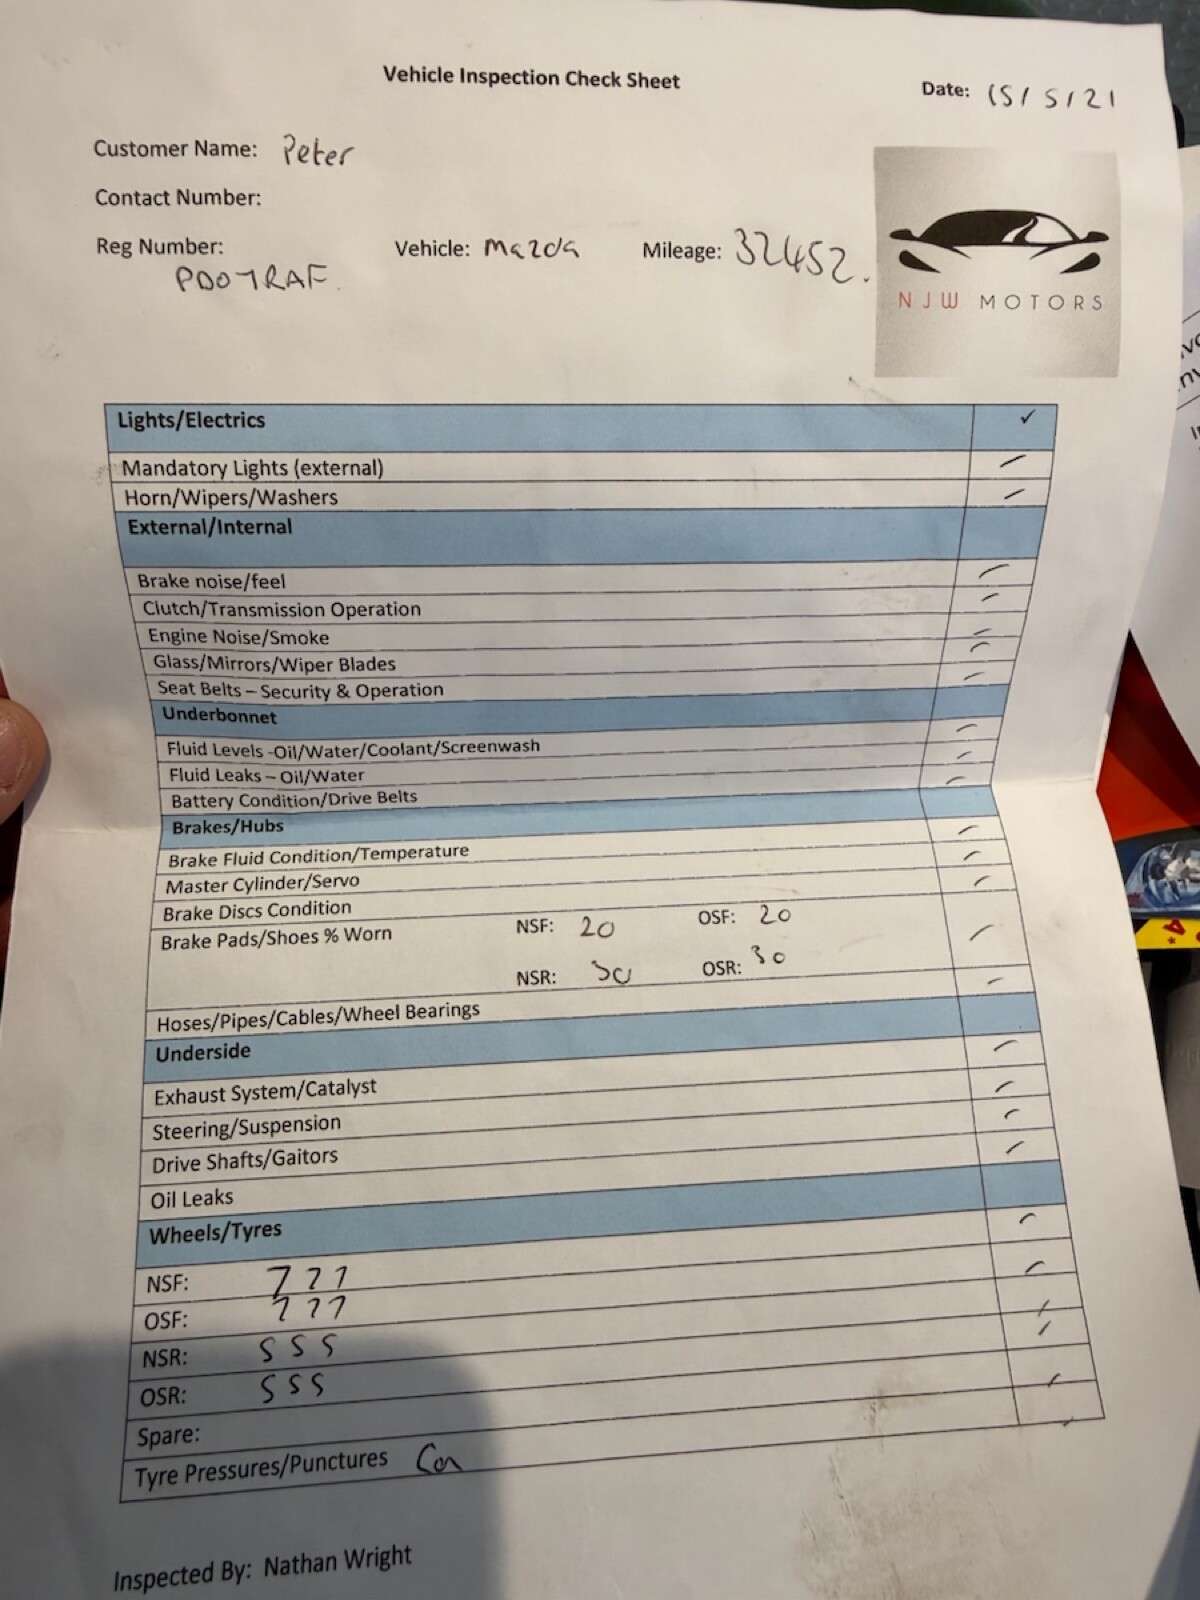 Vehicle Inspection Check Sheet
Date: 15/5/21
Customer Name: Peter
Contact Number:
Reg Number: Vehicle: Mazda Mileage: 32452.
PD07RAF.
NJW MOTORS
Lights/Electrics ✓
Mandatory Lights (external)
Horn/Wipers/Washers
External/Internal
Brake noise/feel
Clutch/Transmission Operation
Engine Noise/Smoke
Glass/Mirrors/Wiper Blades
Seat Belts – Security & Operation
Underbonnet
Fluid Levels -Oil/Water/Coolant/Screenwash
Fluid Leaks – Oil/Water
Battery Condition/Drive Belts
Brakes/Hubs
Brake Fluid Condition/Temperature
Master Cylinder/Servo
Brake Discs Condition
Brake Pads/Shoes % Worn NSF: 20 OSF: 20
NSR: 30 OSR: 30
Hoses/Pipes/Cables/Wheel Bearings
Underside
Exhaust System/Catalyst
Steering/Suspension
Drive Shafts/Gaitors
Oil Leaks
Wheels/Tyres
NSF: 7 7 7
OSF: 7 7 7
NSR: 5 5 5
OSR: 5 5 5
Spare:
Tyre Pressures/Punctures
Inspected By: Nathan Wright